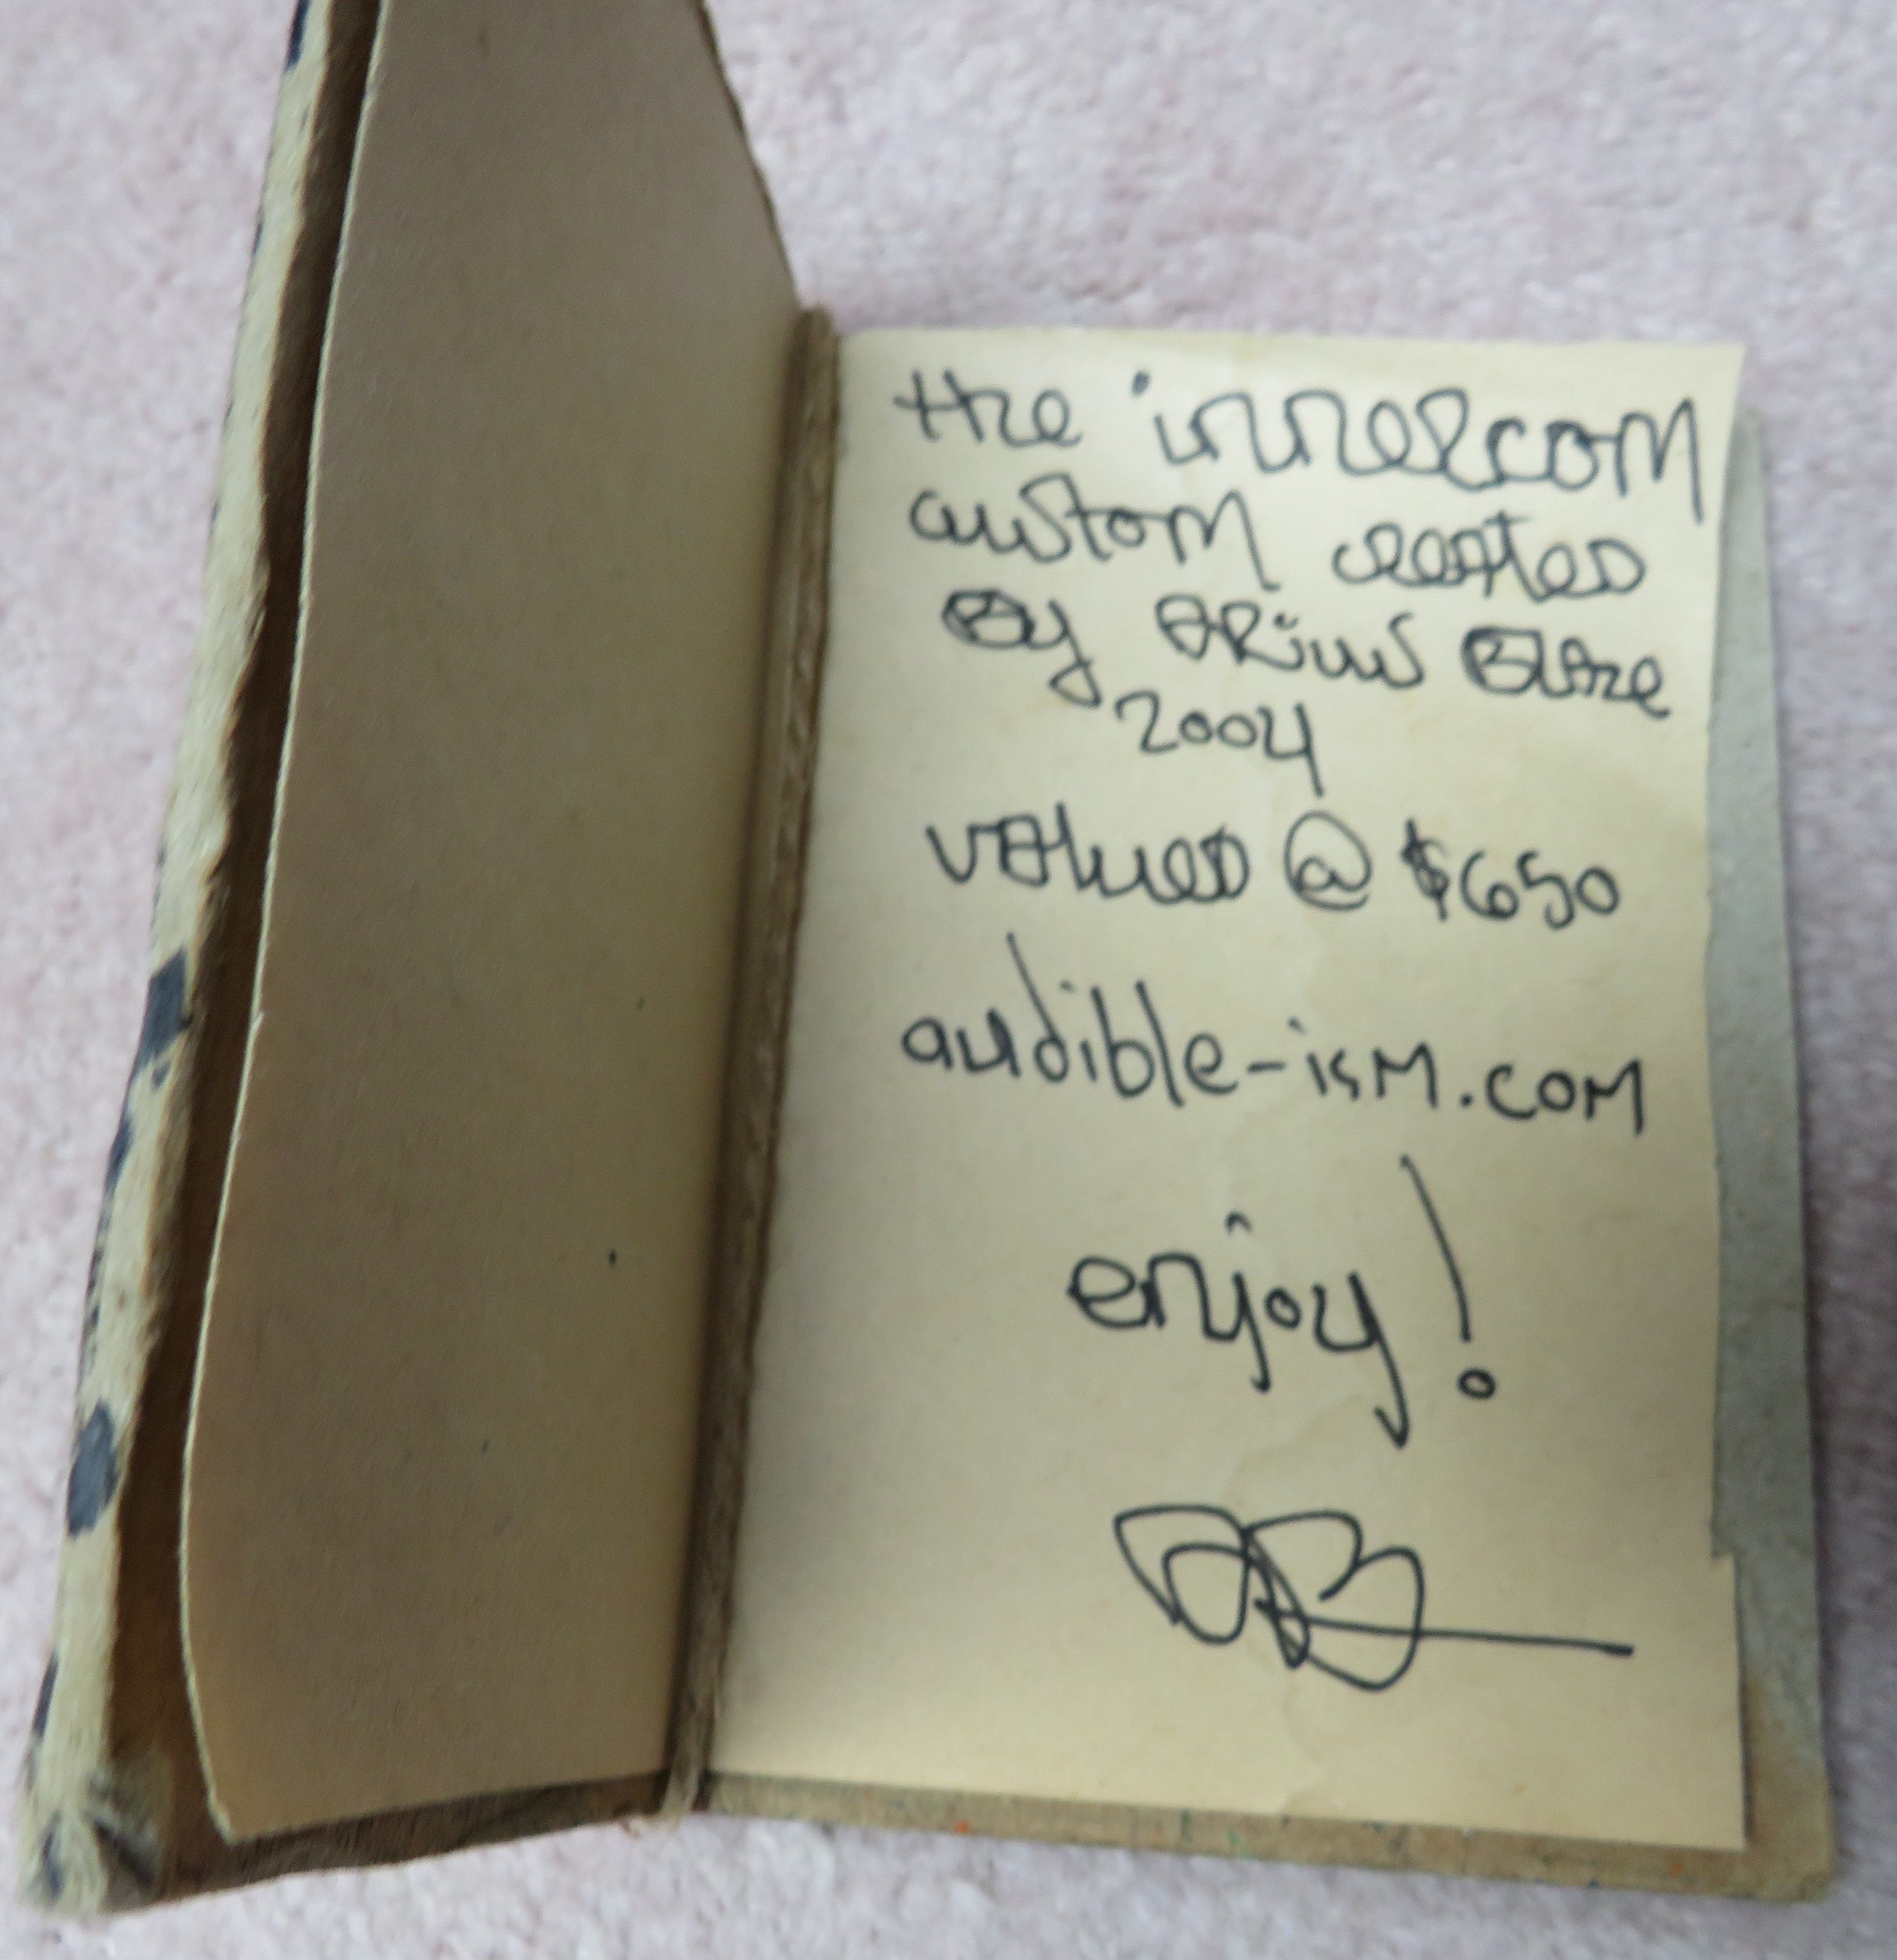 the innercom
custom created
By Arius Blaze
2004
valued @ $650
audible-ism.com
enjoy!
AB